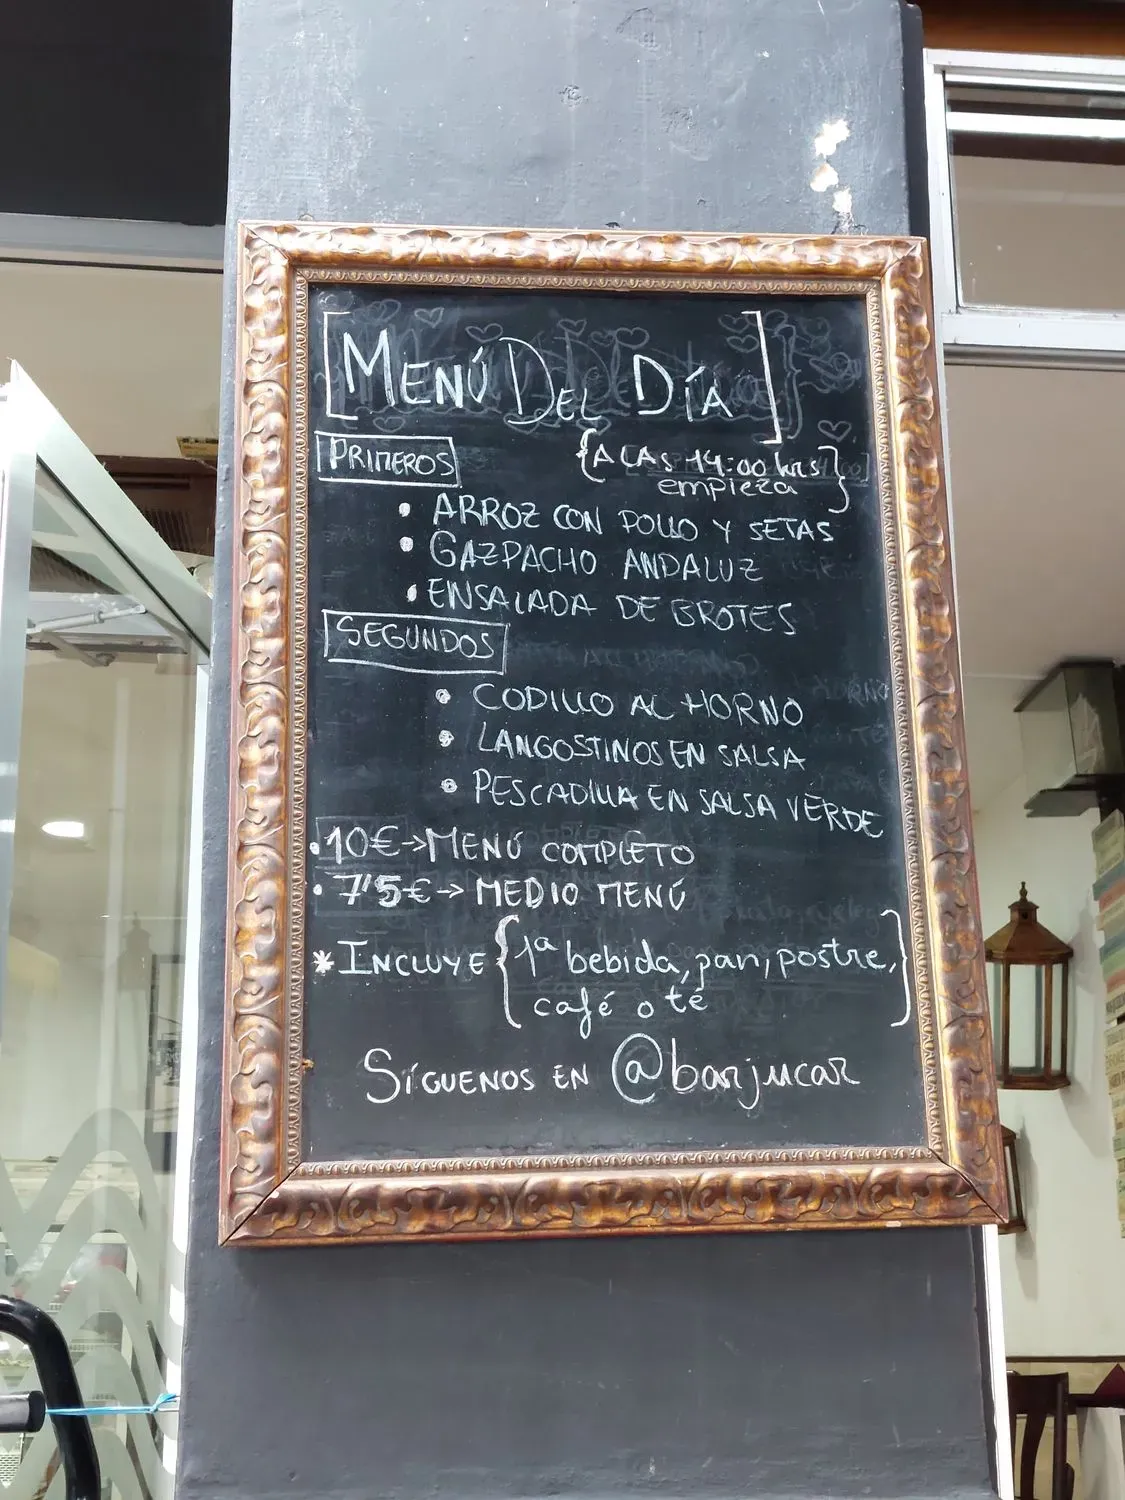 [MENÚ DEL DÍA]
PRIMEROS
{A LAS 14:00 hrs
empieza}
• ARROZ CON POLLO Y SETAS
• GAZPACHO ANDALUZ
• ENSALADA DE BROTES
SEGUNDOS
• CODILLO AL HORNO
• LANGOSTINOS EN SALSA
• PESCADILLA EN SALSA VERDE
• 10€→MENÚ COMPLETO
• 7'5€→ MEDIO MENÚ
*INCLUYE {1ª bebida, pan, postre,
café o té}
SÍGUENOS EN @barjucar